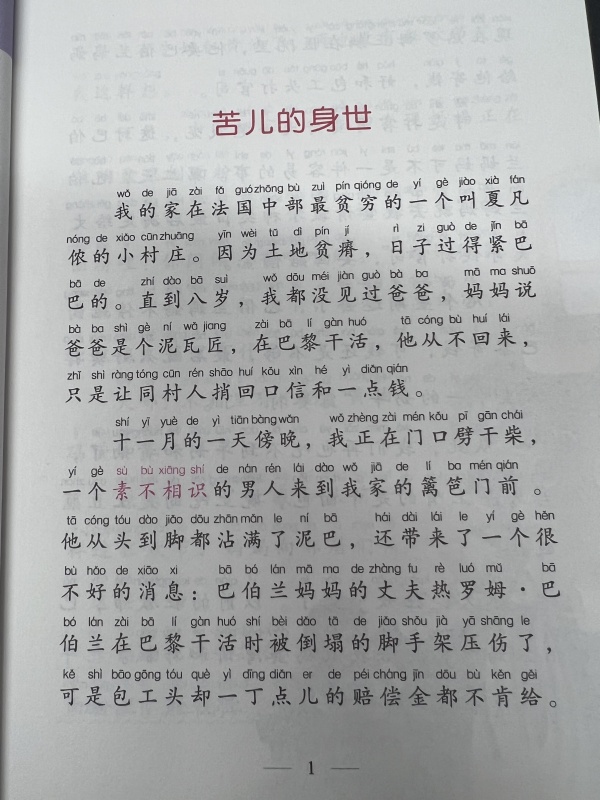 苦儿的身世
wǒ de jiā zài fǎ guó zhōng bù zuì pín qióng de yí gè jiào xià fán
我的家在法国中部最贫穷的一个叫夏凡
nóng de xiǎo cūn zhuāng yīn wèi tǔ dì pín jí rì zi guò de jǐn bā
侬的小村庄。因为土地贫瘠，日子过得紧巴
bā de zhí dào bā suì wǒ dōu méi jiàn guò bà ba mā ma shuō
巴的。直到八岁，我都没见过爸爸，妈妈说
bà ba shì gè ní wǎ jiang zài bā lí gàn huó tā cóng bù huí lái
爸爸是个泥瓦匠，在巴黎干活，他从不回来，
zhǐ shì ràng tóng cūn rén shāo huí kǒu xìn hé yì diǎn qián
只是让同村人捎回口信和一点钱。
shí yī yuè de yì tiān bàng wǎn wǒ zhèng zài mén kǒu pī gān chái
十一月的一天傍晚，我正在门口劈干柴，
yí gè sù bù xiāng shí de nán rén lái dào wǒ jiā de lí ba mén qián
一个素不相识的男人来到我家的篱笆门前。
tā cóng tóu dào jiǎo dōu zhān mǎn le ní bā hái dài lái le yí gè hěn
他从头到脚都沾满了泥巴，还带来了一个很
bù hǎo de xiāo xi bā bó lán mā ma de zhàng fu rè luó mǔ bā
不好的消息：巴伯兰妈妈的丈夫热罗姆·巴
bó lán zài bā lí gàn huó shí bèi dǎo tā de jiǎo shǒu jià yā shāng le
伯兰在巴黎干活时被倒塌的脚手架压伤了，
kě shì bāo gōng tóu què yì dīng diǎn er de péi cháng jīn dōu bù kěn gěi
可是包工头却一丁点儿的赔偿金都不肯给。
1